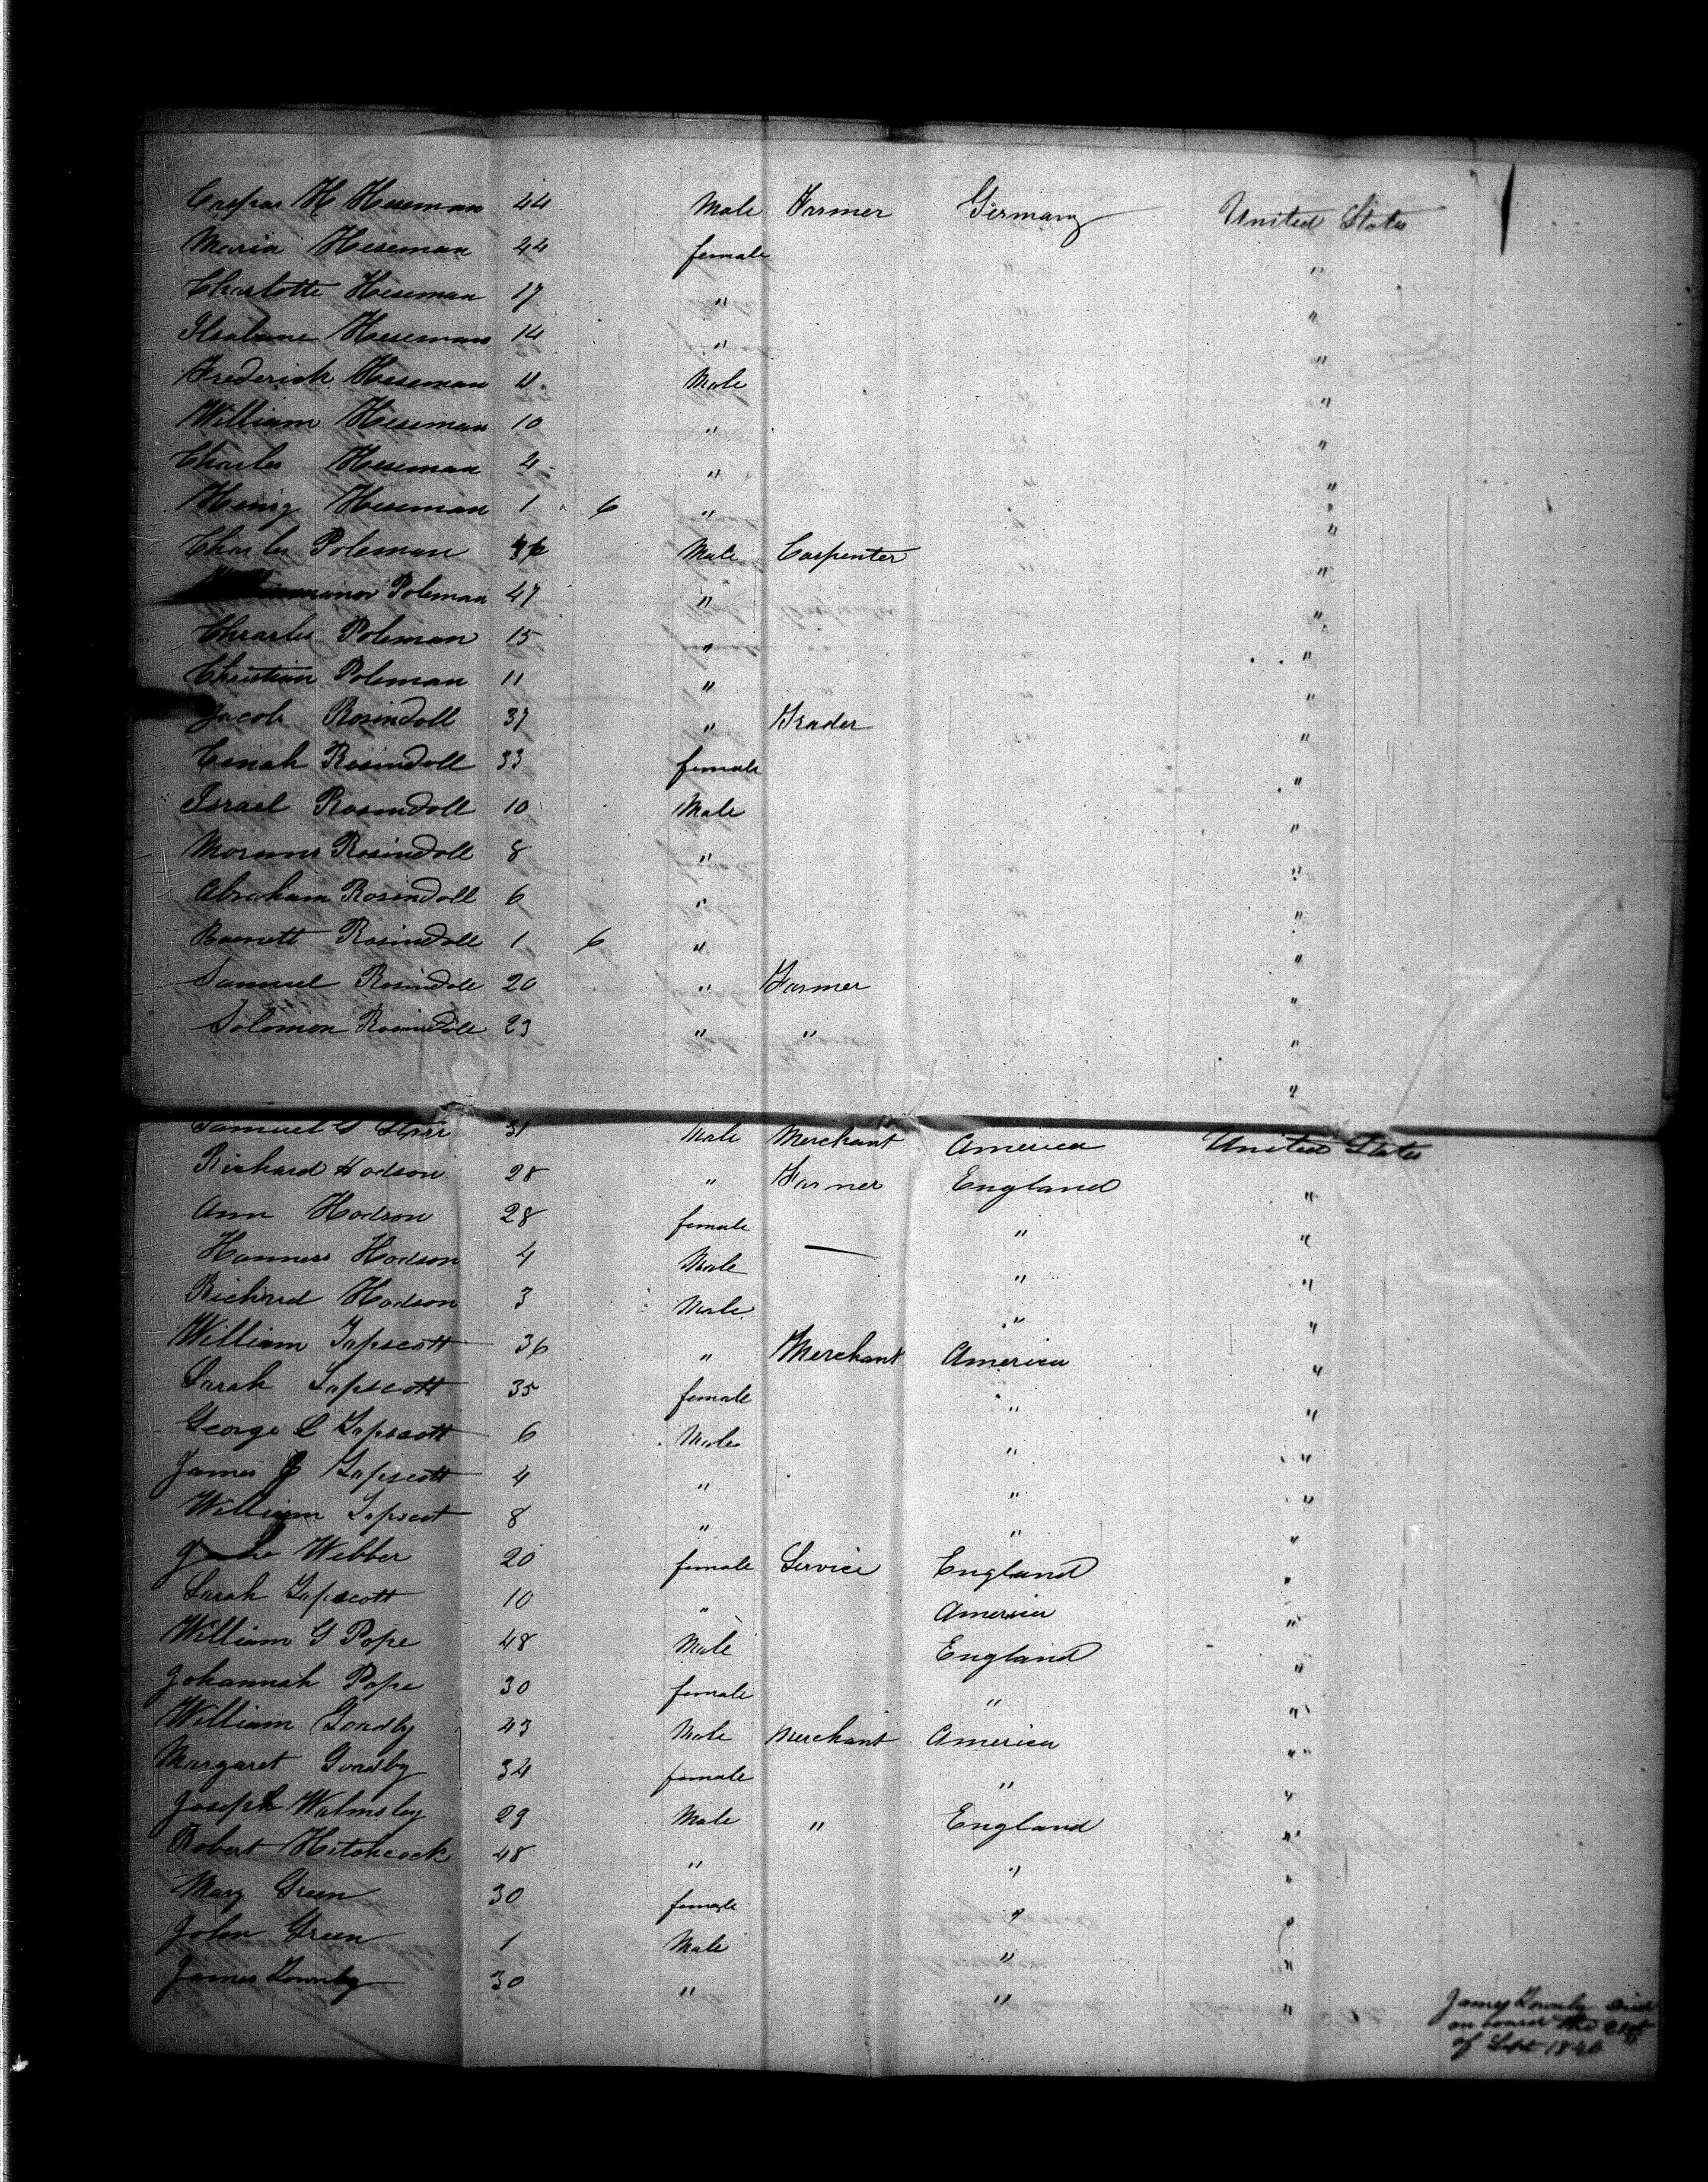 Caspar H Heseman 44 Male Farmer Germany United States
Maria Heseman 44 female "
Charlotte Heseman 17 " "
Heseman 14 " "
Frederick Heseman 11 Male "
William Heseman 10 " "
Charles Heseman 4 " "
Henry Heseman 1 6 " "
Charles Poleman Male Carpenter "
Poleman 47 " "
Chrarles Poleman 15 " "
Christian Poleman 11 " "
Jacob Rosindoll 37 " Trader "
Rosindoll 33 female "
Israel Rosindoll 10 Male "
Rosindoll 8 " "
Abraham Rosindoll 6 " "
Barnett Rosindoll 1 6 " "
Samuel Rosindoll 20 " Farmer "
Solomon Rosindoll 23 " " "
"
Samuel G Starr 31 Male Merchant America United States
Richard Hodson 28 " Farmer England "
Ann Hodson 28 female " "
Hodson 4 Male " "
Richard Hodson 3 Male " "
William Tapscott 36 " Merchant America "
Sarah Tapscott 35 female " "
George L Tapscott 6 Male " "
James J Tapscott 4 " " "
William Tapscot 8 " " "
Webber 20 female Service England "
Sarah Tapscott 10 " America "
William G Pope 48 Male England "
Johannah Pope 30 female " "
William Goadby 43 Male Merchant America "
Margaret Goadby 34 female " "
Joseph Walmsley 29 Male " England "
Robert Hitchcock 48 " " "
Mary Green 30 female " "
John Green 1 Male " "
James Townly 30 " " "
James Townly died
on board the 21st
of Sept 1846